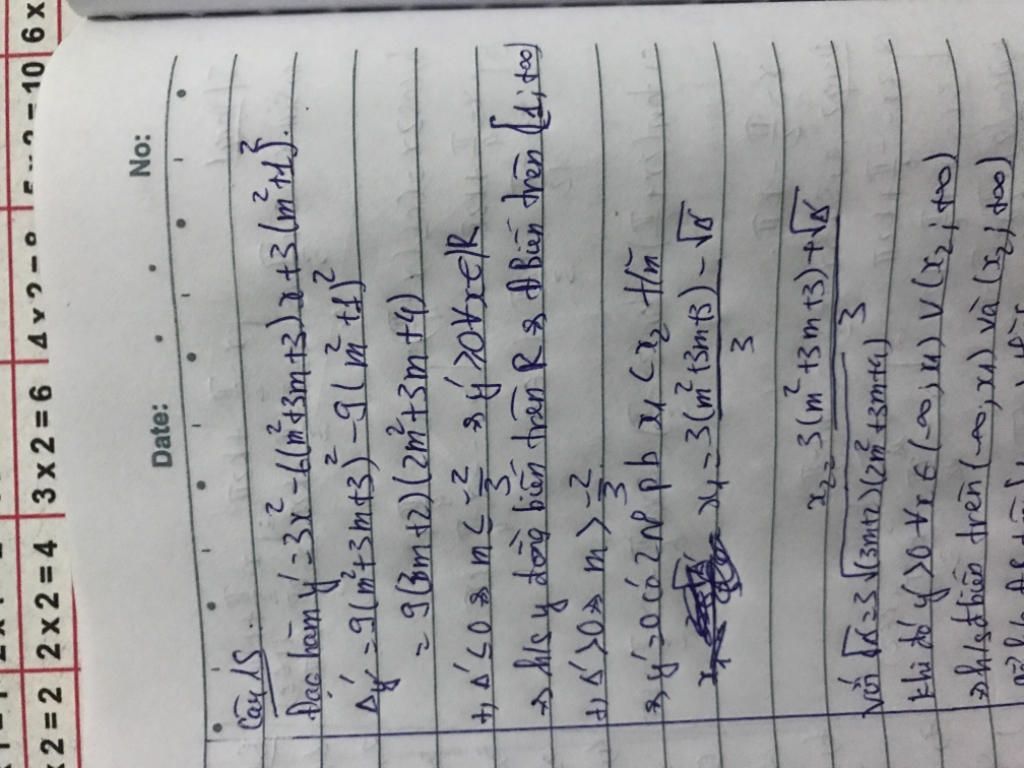 Date: No:
Câu 15
Đạo hàm y' = 3x² - 6(m²+3m+3)x + 3(m²+1)².
Δ'y' = 9(m²+3m+3)² - 9(m²+1)²
= 9(3m+2)(2m²+3m+4)
+, Δ' ≤ 0 => m ≤ -2/3 => y' ≥ 0 ∀x ∈ R
=> h/s y đồng biến trên R => đ Biến trên [1; +∞)
+) Δ' > 0 => m > -2/3
=> y' = 0 có 2 No pb x₁ < x₂ t/m
x₁ = 3(m²+3m+3) - √Δ' / 3
x₂ = 3(m²+3m+3) + √Δ' / 3
Với √Δ' = 3√(3m+2)(2m²+3m+4)
Khi đó y' > 0 ∀x ∈ (-∞; x₁) ∨ (x₂; +∞)
=> h/s đ biến trên (-∞; x₁) và (x₂; +∞)
2 x 2 = 4
3 x 2 = 6